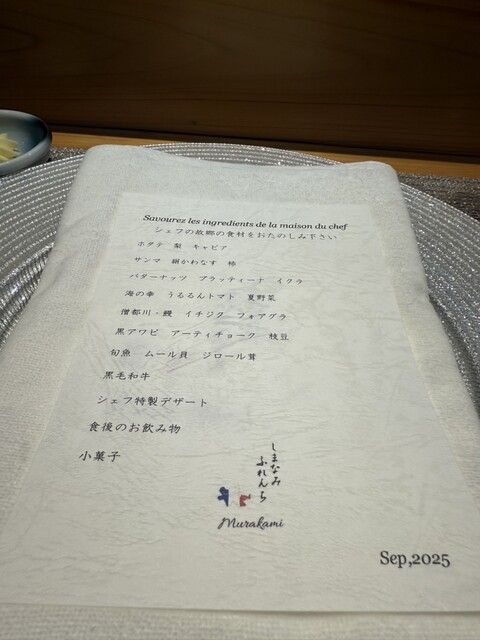 Savourez les ingredients de la maison du chef
シェフの故郷の食材をおたのしみ下さい
ホタテ 梨 キャビア
サンマ 絹かわなす 柿
バターナッツ ブラッティーナ イクラ
海の幸 うるるんトマト 夏野菜
僧都川・鰻 イチジク フォアグラ
黒アワビ アーティチョーク 枝豆
旬魚 ムール貝 ジロール茸
黒毛和牛
シェフ特製デザート
食後のお飲み物
小菓子
しまなみ
ふれんち
Murakami
Sep,2025